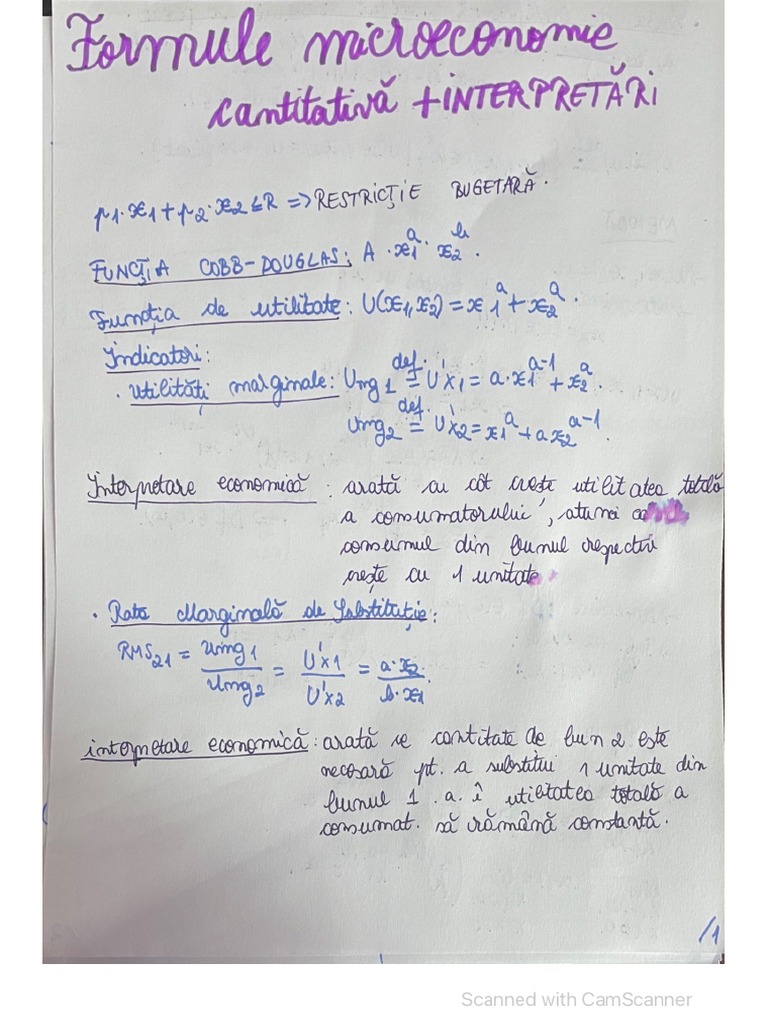 Formule microeconomie
cantitativă + INTERPRETĂRI
p1·x1+p2·x2≤R => RESTRICȚIE BUGETARĂ.
FUNCȚIA COBB-DOUGLAS: A · x1^a · x2^b.
Funcția de utilitate: U(x1,x2) = x1^a + x2^a.
Indicatori:
· Utilități marginale: Umg1 def.= U'x1 = a·x1^a-1 + x2^a.
Umg2 def.= U'x2 = x1^a + ax2^a-1.
Interpretare economică: arată cu cât crește utilitatea totală
a consumatorului, atunci
consumul din bunul respectiv
crește cu 1 unitate
· Rata Marginală de Substituție:
RMS21 = Umg1/Umg2 = U'x1/U'x2 = a·x2/b·x1.
interpretare economică: arată ce cantitate de bun 2 este
necesară pt. a substitui 1 unitate din
bunul 1 .a.î utilitatea totală a
consumat. să rămână constantă.
/1
Scanned with CamScanner